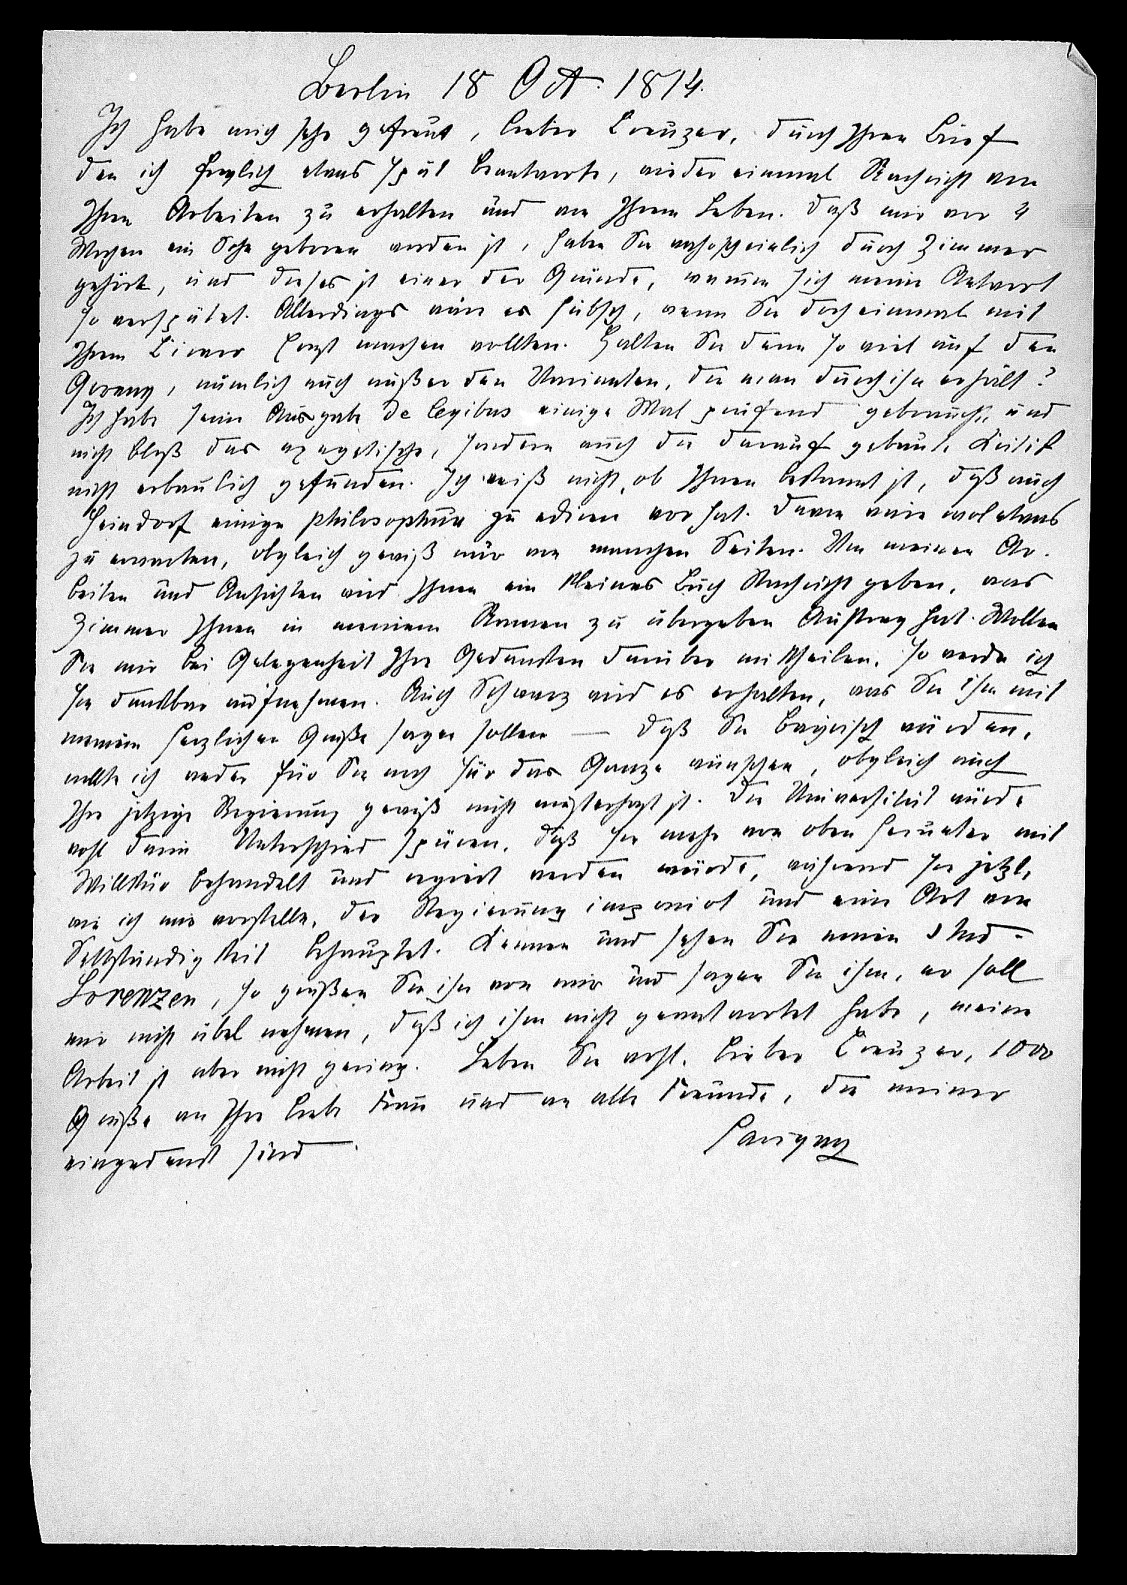 Berlin 18 Oct. 1814.
Ich habe mich sehr gefreut, lieber Creuzer, durch Ihren Brief
den ich freylich etwas spät beantworte, wieder einmal Nachricht von
Ihren Arbeiten zu erhalten und von Ihrem Leben. Daß mir vor 4
Wochen ein Sohn geboren worden ist, haben Sie wahrscheinlich durch Zimmer
gehört, und dieses ist einer der Gründe, warum sich meine Antwort
so verspätet. Allerdings wäre es hübsch, wenn Sie doch einmal mit
Ihrem Cicero Ernst machen wollten. Halten Sie denn so viel auf den
Goerenz, nämlich auch außer den Varianten, die man durch ihn erhält?
Ich habe seine Ausgabe de legibus einige Mal prüfend gebraucht, und
nicht bloß das exegetische, sondern auch die darauf gebaute Kritik
nicht erbaulich gefunden. Ich weiß nicht, ob Ihnen bekannt ist, daß auch
Heindorf einige philosophica zu edieren vor hat. Davon wäre wol etwas
zu erwarten, obgleich gewiß nur von manchen Seiten. Von meinen Ar-
beiten und Ansichten wird Ihnen ein kleines Buch Nachricht geben, was
Zimmer Ihnen in meinem Namen zu übergeben Auftrag hat. Wollen
Sie mir bei Gelegenheit Ihre Gedanken darüber mittheilen, so werde ich
sie dankbar aufnehmen. Auch Schwarz wird es erhalten, was Sie ihm mit
meinem herzlichen Gruße sagen sollen — Daß Sie bayrisch würden,
wollte ich weder für Sie noch für das Ganze wünschen, obgleich auch
Ihre jetzige Regierung gewiß nicht musterhaft ist. Die Universität würde
wohl darin Unterschied spüren, daß sie mehr von oben herunter mit
Willkür behandelt und regiert werden würde, während sie jetzt,
wie ich mir vorstelle, der Regierung imponirt und eine Art von
Selbständigkeit behauptet. Kennen und sehen Sie einen Stud.
Lorenzen, so grüßen Sie ihn von mir und sagen Sie ihm, er soll
mir nicht übel nehmen, daß ich ihm nicht geantwortet habe, meine
Arbeit ist aber nicht gering. Leben Sie wohl, lieber Creuzer, 1000
Grüße an Ihre liebe Frau und an alle Freunde, die meiner
eingedenk sind. Savigny